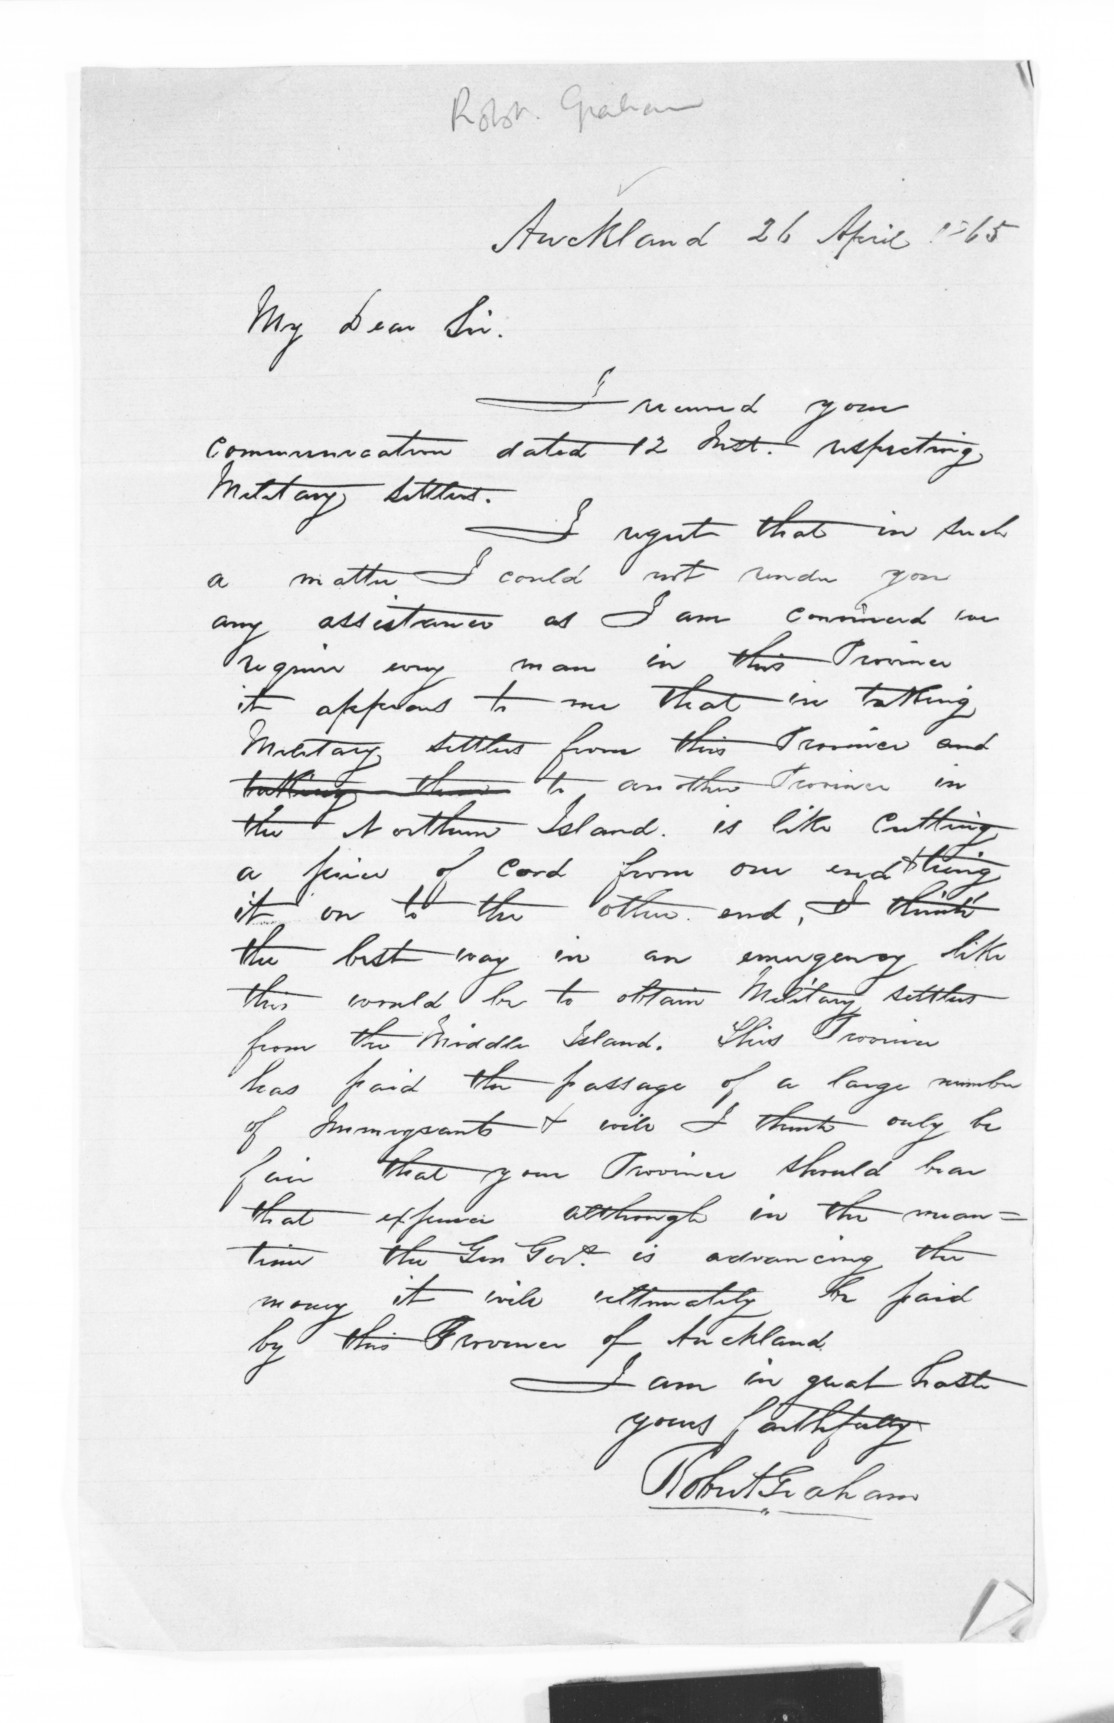 Robt. Graham
Auckland 26 April 1865
My Dear Sir.
I received your
communication dated 12 Inst. respecting
Military settlers.
I regret that in such
a matter I could not render you
any assistance as I am convinced we
require every man in this Province
it appears to me that in taking
Military settlers from this Province and
taking them to another Province in
the Northern Island. is like cutting
a peice of cord from one end & tieing
it on to the other end, I think
the best way in an emergency like
this would be to obtain Military settlers
from the Middle Island. This Province
has paid the passage of a large number
of Immigrants & will I think only be
fair that your Province should bear
that expence although in the mean=
time the Gen Govt. is advancing the
money it will ultimately be paid
by this Province of Auckland
I am in great haste
yours faithfully
Robert Graham